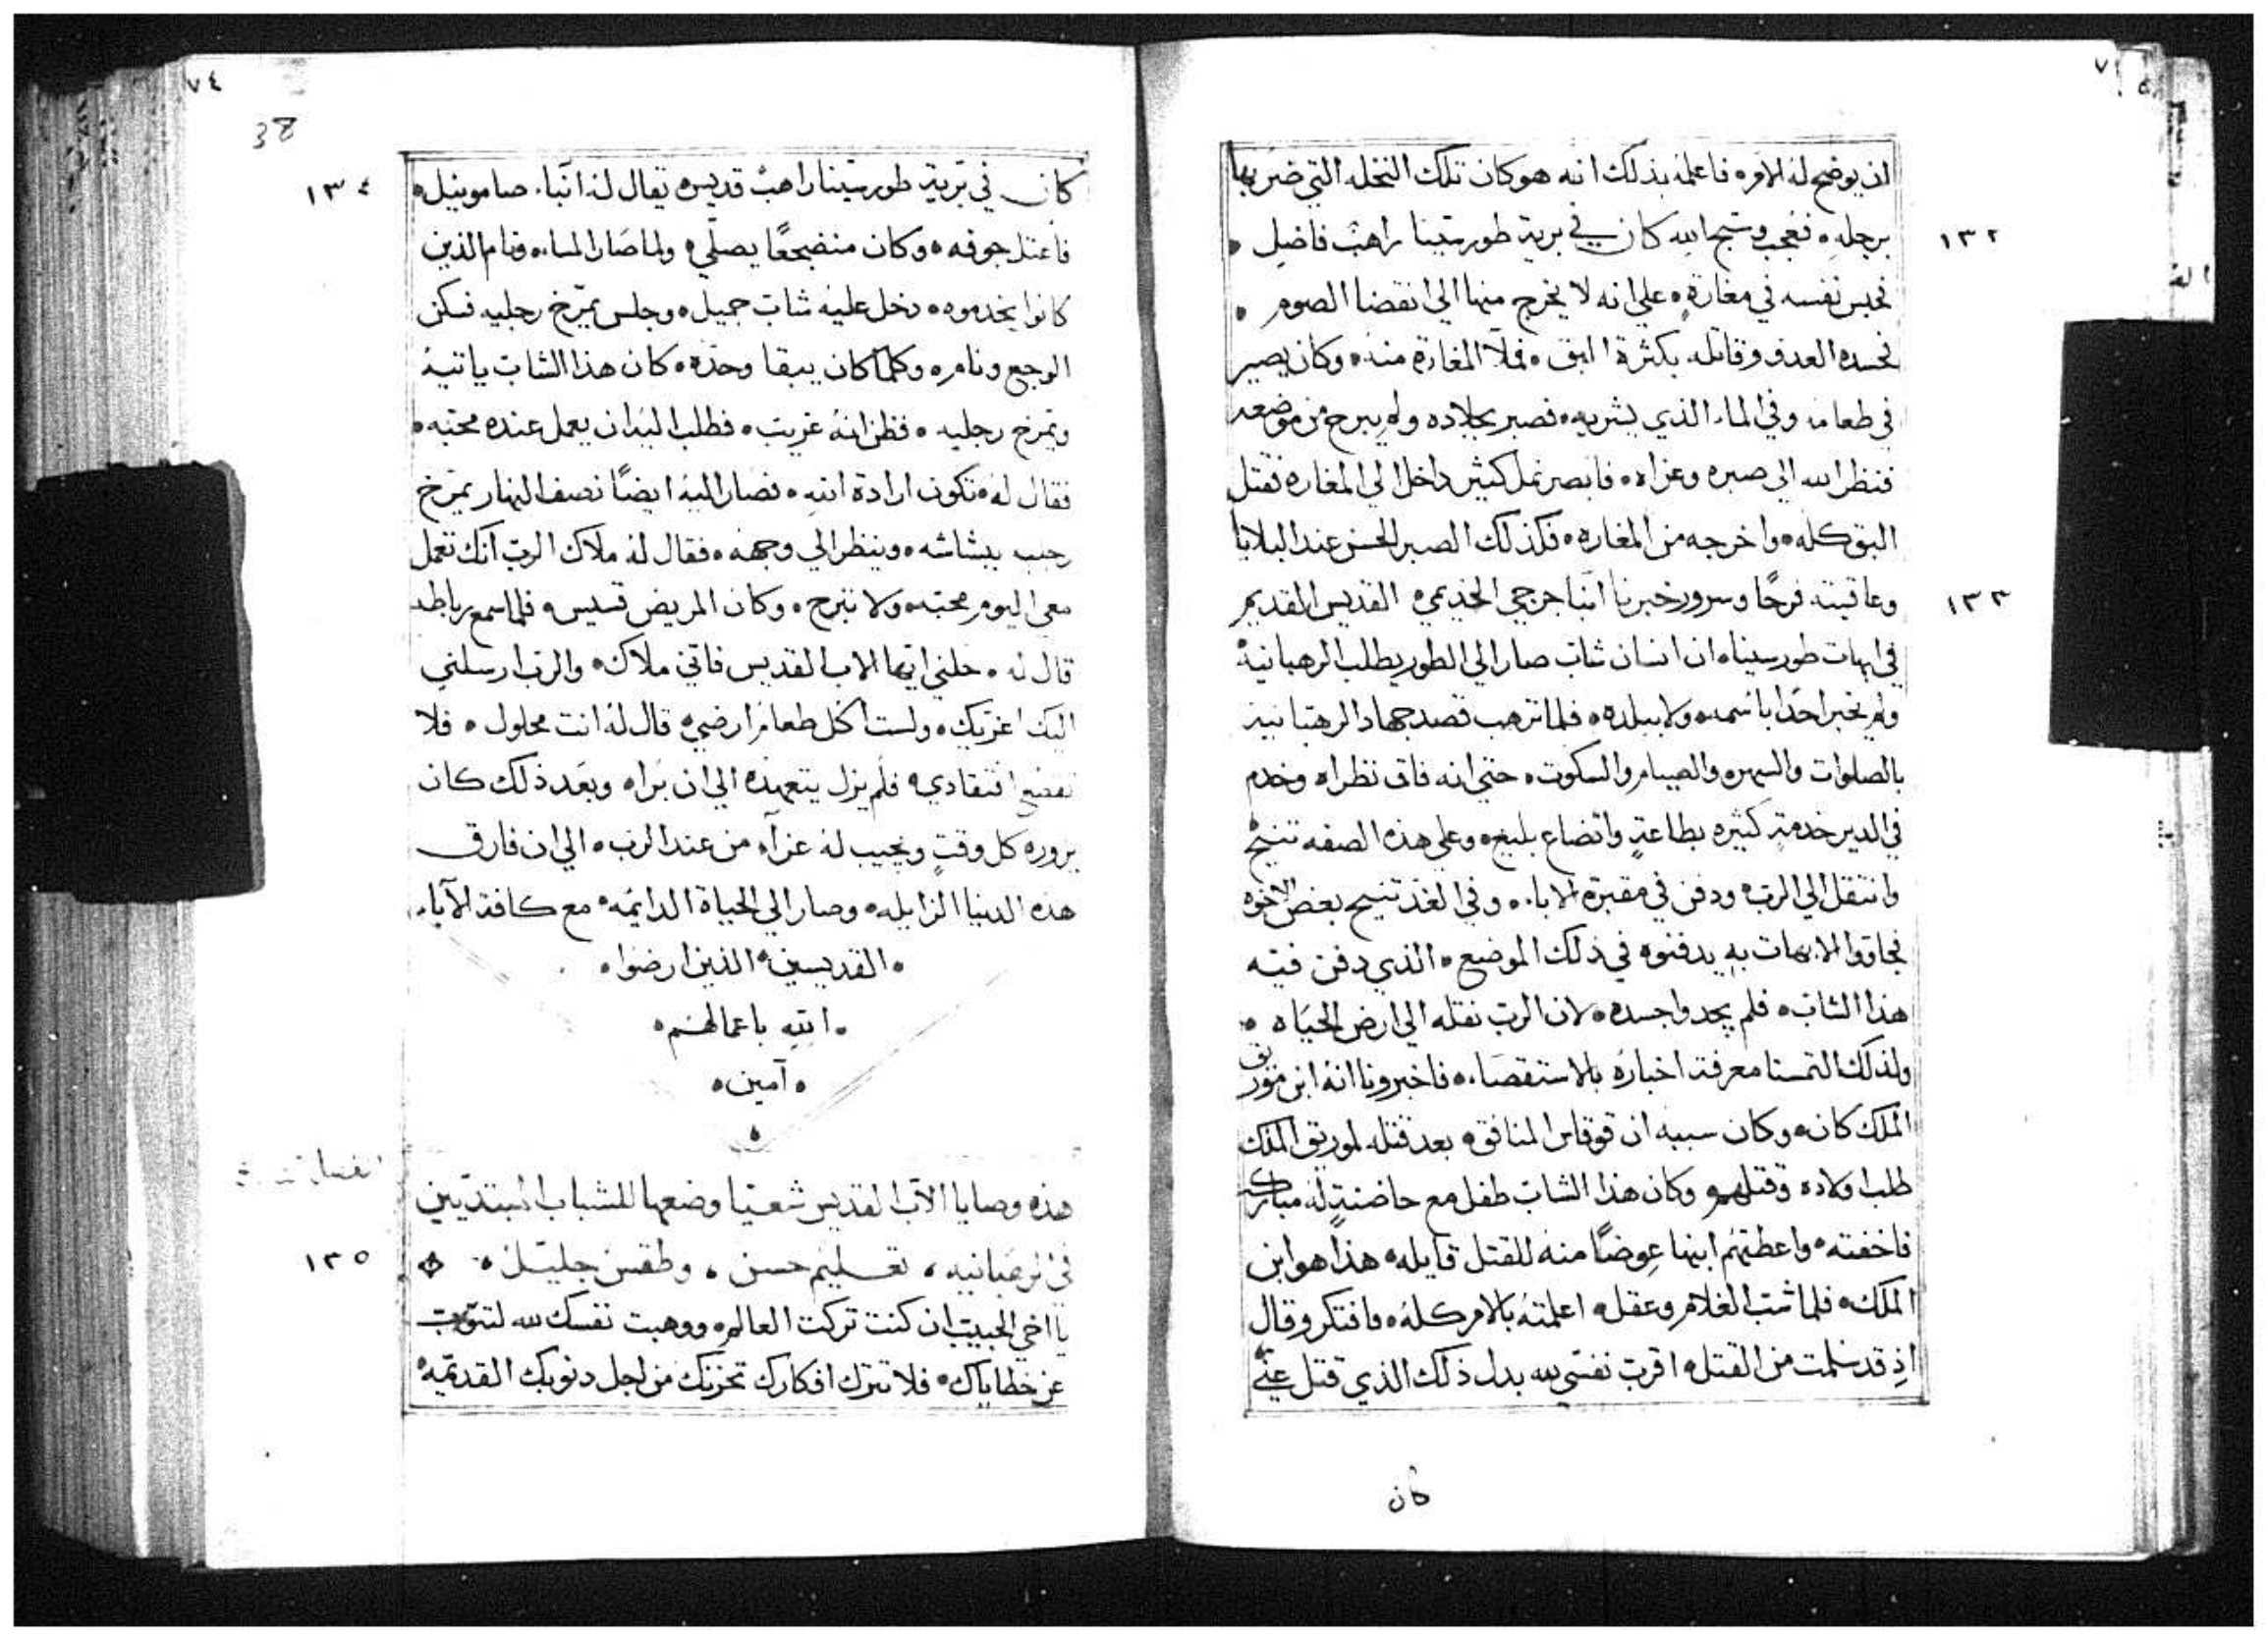 ان يوضح له الامر ه فاعلمه بذلك انه هو كان تلك النخله التي ضربها
برجله ه فعجب وسبح الله كان في برية طور سينا راهب فاضل ه
١٣٢
فحبس نفسه في مغارةٍ ه علي انه لا يخرج منها الي انقضا الصوم ه
فحسده العدو وقاتله بكثرة البق ه فملآ المغارة منه ه وكان يصير
في طعامه وفي الماء الذي يشربه ه فصبر بجلاده ولم يبرح من موضعه
فنظر الله الي صبره وعزاه ه فابصر نمل كثير داخل الي المغاره فقتل
البق كله ه واخرجه من المغاره ه فكذلك الصبر الحسن عند البلايا
وعاقبته فرحًا وسرور خبرنا انبا جرجي القديس القديم
١٣٣
في ابهات طور سيناه ان انسان شاب صار الي الطور يطلب الرهبانية
ولم يخبر احدًا باسمه ه ولا ببلده ه فلما ترهب قصد جهاد الرهبانية
بالصلوات والسهر ه والصيام والسكوت ه حتي انه فاق نظراه وخدم
في الدير خدمةٍ كثيره بطاعةٍ واتضاع بليغ ه وعلي هذه الصفه تنيح
وانتقل الي الرب ه ودفن في مقبرة الاباء ه وفي الغد تنيح بعض الاخوه
فجاووا الابهات به يدفنوه في ذلك الموضع ه الذي دفن فيه
هذا الشاب ه فلم يجدوا جسده ه لان الرب نقله الي ارض الحياه ه
ولذلك التمسنا معرفة اخباره بالاستقصاء ه فاخبرونا انه ابن موريق
الملك كان ه وكان سببه ان فوقاس المنافق ه بعد قتله لموريق الملك
طلب اولاده وقتلهم وكان هذا الشاب طفل مع حاضنةٍ له مباركه
فاخفته ه واعطتهم ابنها عوضًا منه للقتل قايله ه هذا هو ابن
الملك ه فلما شب الغلام وعقل ه اعلمته بالامر كله ه فافتكر وقال
اذ قد سلمت من القتل ه اقرب نفسي لله بدل ذلك الذي قتل عني
كان
٧٤
38
كان في برية طور سينا راهب قديس ه يقال له انبا صامويل ه
١٣٤
فاعتل جوفه ه وكان منضجعًا يصلي ه ولما صار المساء ه ونام الذين
كانوا يخدموه ه دخل عليه شاب جميل ه وجلس يمرخ رجليه فسكن
الوجع ونام ه وكلما كان يبقا وحده ه كان هذا الشاب ياتيه
ويمرخ رجليه ه فظن انه غريب ه فطلب اليه ان يعمل عنده محبه ه
فقال له ه تكون ارادة الله ه فصار اليه ايضًا نصف النهار يمرخ
رجليه ببشاشه ه وينظر الي وجهه ه فقال له ملاك الرب انك تعمل
معي اليوم محبه ه ولا تبرح ه وكان المريض قسيس ه فلما سمع رباطه
قال له ه حلني ايها الاب القديس فاني ملاك ه والرب ارسلني
اليك اعزيك ه ولست اكل طعام ارضي ه قال له انت محلول ه فلا
افتقادي ه فلم يزل يتعهده الي ان براه وبعد ذلك كان
يزوره كل وقتٍ ويجيب له عزآء من عند الرب ه الي ان فارق
هذه الدنيا الزايله ه وصار الي الحياة الدايمه ه مع كافة الآباء
ه القديسين ه الذين ارضوا ه
ه الله باعمالهم ه
ه آمين ه
ه
هذه وصايا الآب القديس شعيا وضعها للشباب المبتديين
في الرهبانيه ، تعليم حسن ، وطقس جليل ه
١٣٥
يا اخي الحبيب ان كنت تركت العالم ه ووهبت نفسك لله لتتوب
عن خطاياك ه فلا تترك افكارك تحزنك من اجل دنوبك القديمه ه